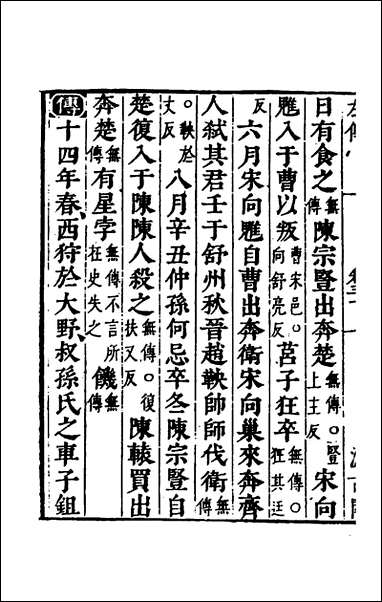 日有食之無傳陳宗豎出奔楚無傳○豎上主反宋向
魋入于曹以叛曹宋邑○向舒亮反莒子狂卒無傳○狂其廷
反六月宋向魋自曹出奔衛宋向巢來奔齊
人弒其君壬于舒州秋晉趙鞅帥師伐衛無傳
○鞅於丈反八月辛丑仲孫何忌卒冬陳宗豎自
楚復入于陳陳人殺之無傳○復扶又反陳轅買出
奔楚無傳有星孛無傳不言所在史失之饑無傳
傳十四年春、西狩於大野、叔孫氏之車子鉏